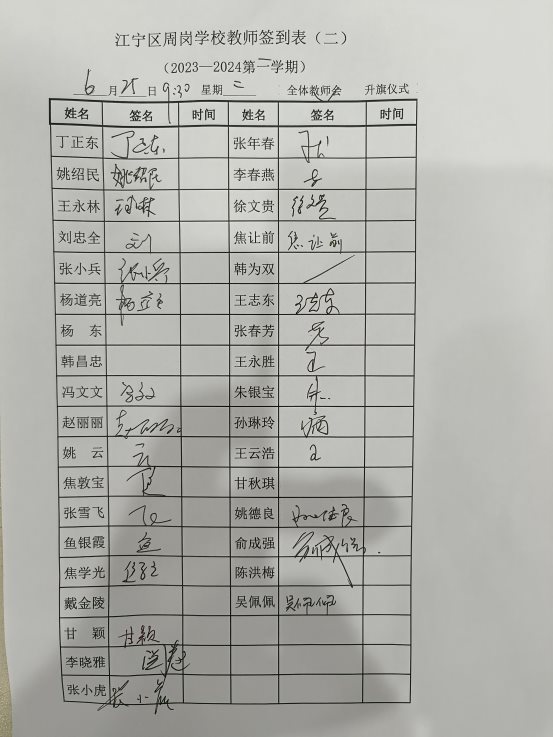 江宁区周岗学校教师签到表（二）
（2023—2024第二学期）
6月25日 9:30 星期二 全体教师会 升旗仪式
姓名 签名 时间 姓名 签名 时间
丁正东 丁正东 张年春
姚绍民 姚绍民 李春燕
王永林 王永林 徐文贵 徐文贵
刘忠全 刘 焦让前 焦让前
张小兵 张小兵 韩为双
杨道亮 王志东 王志东
杨 东 张春芳 芳
韩昌忠 王永胜 王
冯文文 冯文文 朱银宝 朱
赵丽丽 赵丽丽 孙琳玲
姚 云 云 王云浩
焦敦宝 甘秋琪
张雪飞 飞 姚德良 姚德良
鱼银霞 鱼 俞成强 俞成强
焦学光 陈洪梅
戴金陵 吴佩佩 吴佩佩
甘 颖 甘颖
李晓雅
张小虎 张小虎